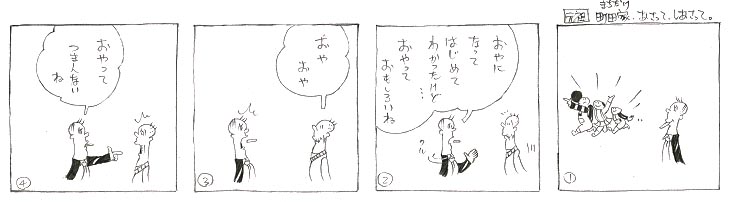 まちだけ
元祖 町田家、あさって、しあさって。
①
おやに
なって
はじめて
わかったけど
…
おやって
おもしろいね
クルッ
②
おや
おや
③
おやって
つまんない
ね
④